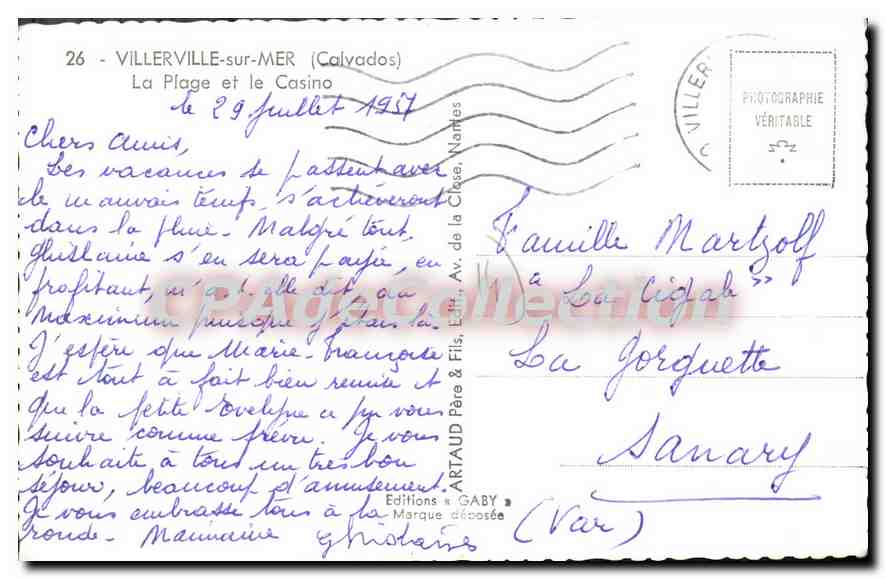 26 - VILLERVILLE-sur-MER (Calvados)
La Plage et le Casino
le 29 Juillet 1957
Chers Amis,
Les vacances se passent avec
le mauvais temps, s'achèveront
dans la pluie - Malgré tout,
Ghislaine s'en sera payée, en
profitant, m'a-t-elle dit, au
Maximum puisque j'étais là.
J'espère que Marie-Françoise
est tout à fait bien remise et
que la petite Evelyne a pu vous
suivre comme prévu. Je vous
souhaite à tous un très bon
séjour, beaucoup d'amusement.
Je vous embrasse tous à la
ronde - Ghislaine
Editions « GABY »
Marque déposée
ARTAUD Père & Fils, Edit., Av. de la Close, Nantes
VILLER
PHOTOGRAPHIE
VÉRITABLE
Famille Martzolf
"La Cigale"
La Gorguette
Sanary
(Var)
CPADeCollection